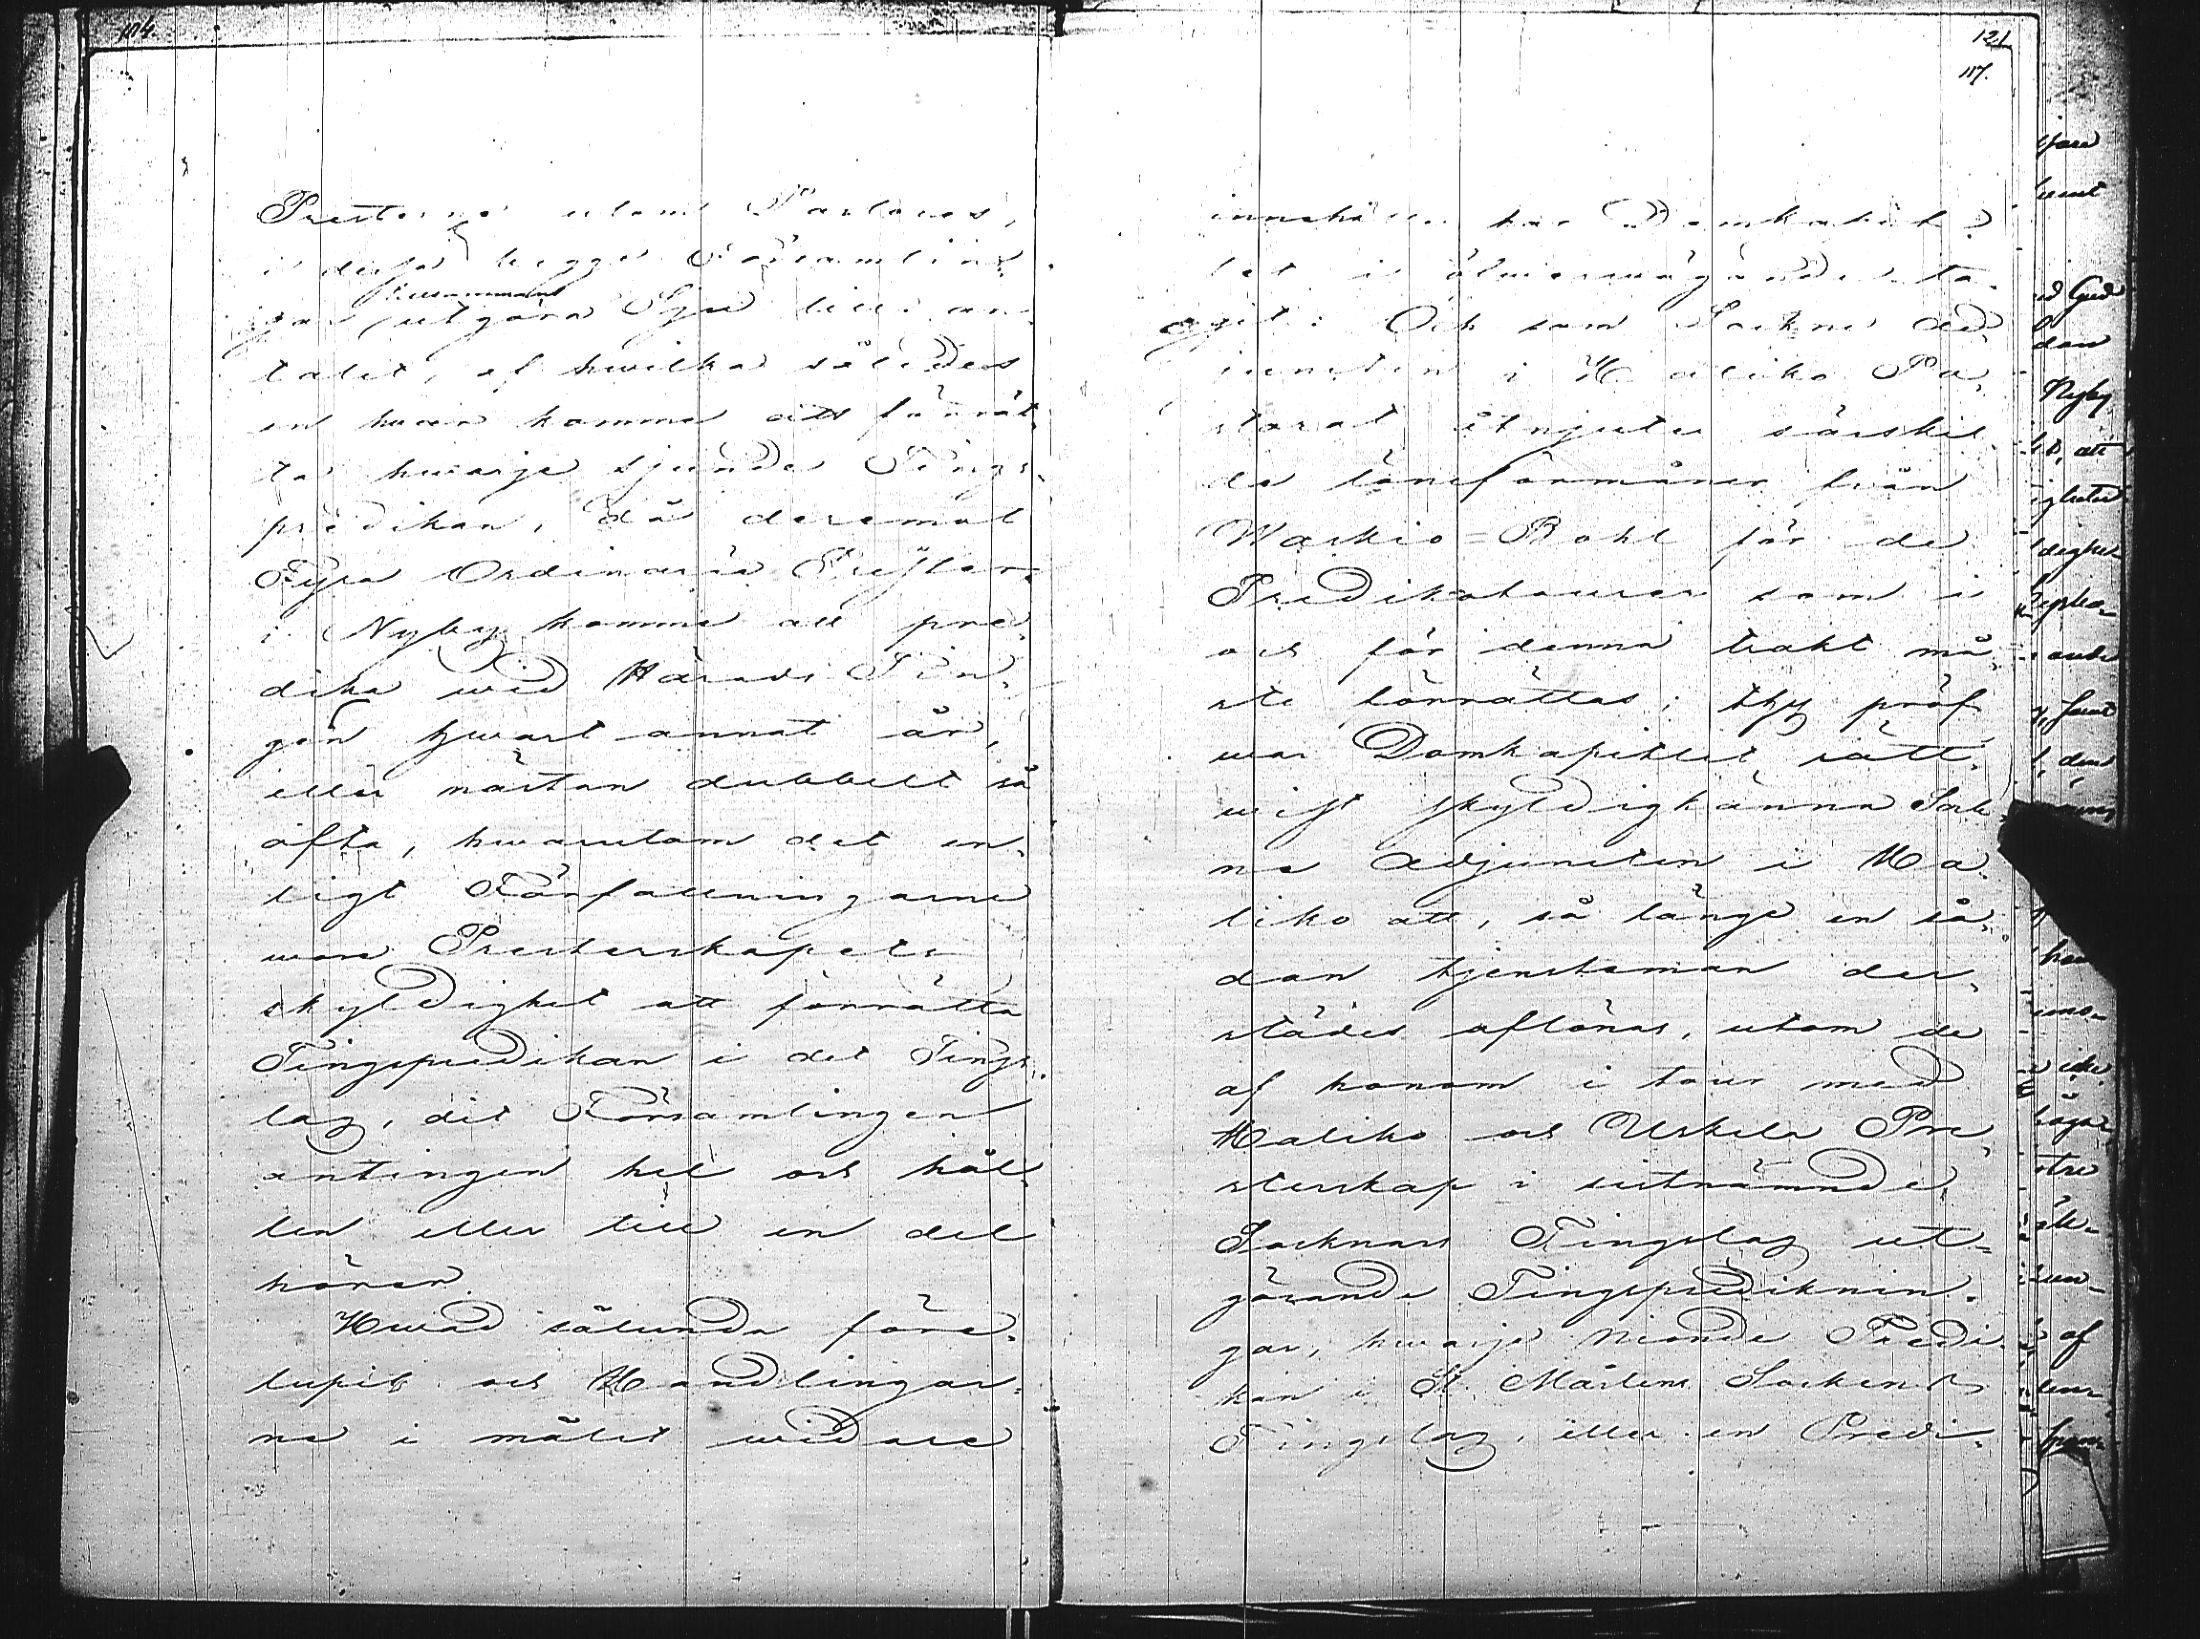 Presterne utom Pastores,
i dessa begge Församlin-
tillsammans
gar utgöra Sju till an-
talet, af hwilka således
en hwar komme att förrät-
ta hwarje sjunde Tings-
predikan, då deremot
Fyra Ordinarie Prester
i Nyby komme att pre-
dika wid Härads Tin-
gen hwart annat år,
eller nästan dubbelt så
ofta, hwarutom det en-
ligt Författningarne
wore Presterskapets
skyldighet att förrätta
Tingspredikan i det Tings-
lag, dit Församlingen
antingen hel och hål-
len eller till en del
hörer.
Hwad sålunda före-
lupit och Handlingar-
ne i målet widare
121
117.
innehålla har Domkapit-
let i öfwerwägande ta-
git: Och som Sockne Ad-
juncten i Haliko Pa-
storat åtnjuter särskil-
da löneförmåner från
Waskio=Bohl för de
Predikotourer som i
och för denna trakt må-
ste förrättas; thy pröf-
war Domkapitlet rätt-
wist skyldigkänna Sock-
ne Adjuncten i Ha-
liko att, så länge en så-
dan tjensteman der-
städes aflönas, utom de
af honom i tour med
Haliko och Uskela Pre-
sterskap i sistnämnde
Socknars Tingslag ut-
görande Tingsprediknin-
gar, hwarje Nionde Predi-
kan i St. Mårtens Sockens
Tingslag, eller en Predi-